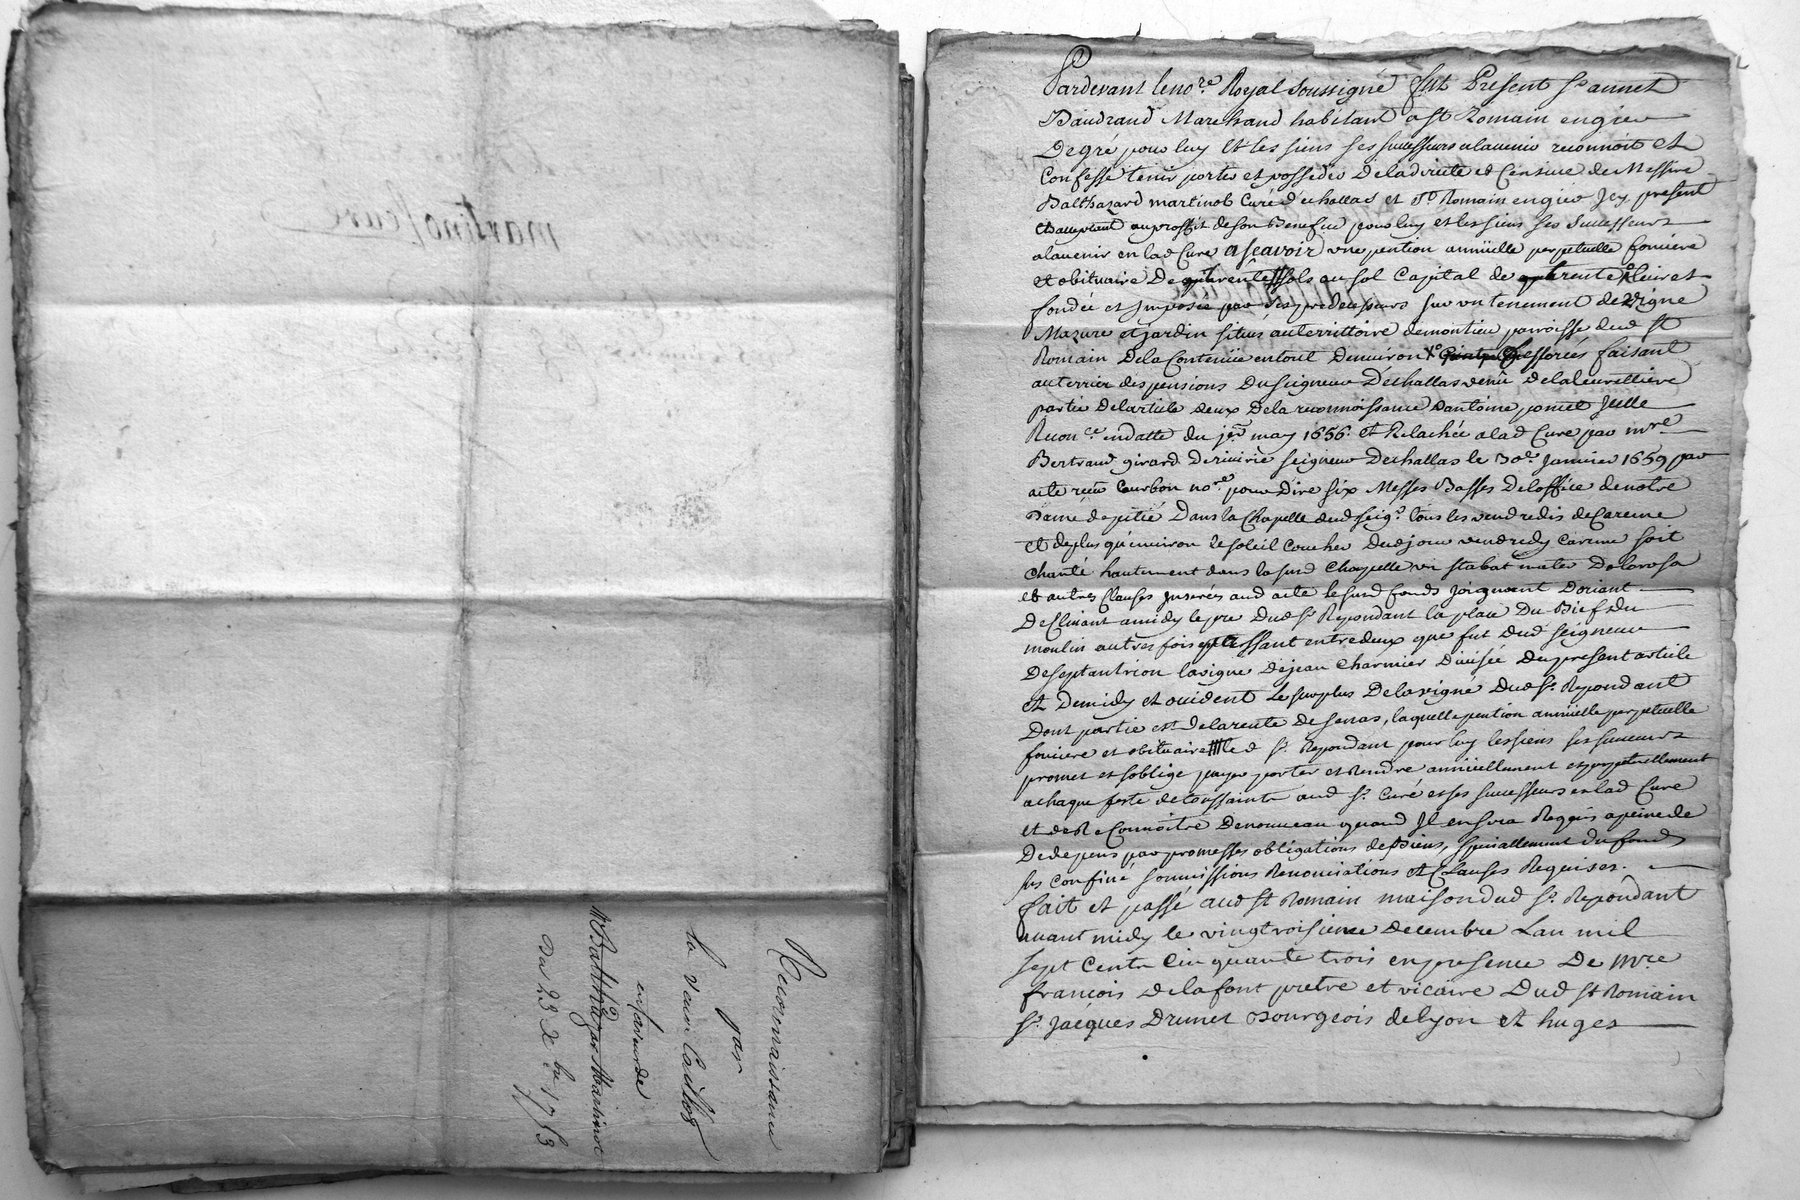 martinol curé
Reconnaissance
par
la veuve
en faveur de
Mre Balthazar Martinot
Du 23 Xbre 1753
Pardevant le nore Royal soussigné fut Present sr annet
Baudrand Marchand habitant a st Romain en gier
De gré pour luy et les siens ses successeurs alavenir reconnoit et
Confesse tenir porter et posseder De la directe et Censive de Messire
Balthazard martinob Curé d'echallas et st Romain en gier Jcy present
et acceptant au proffit de son Benefice pour luy et les siens ses Successeurs
alavenir en lad Cure a scavoir une pention annüelle perpetuelle fonciere
et obituaire De sols au sol Capital de
fondée et Jmposée par ses predecesseurs sur un tenement de vigne
Mazure et jardin situés au territtoire de montieu parroisse dud st
Romain De la Contenüe en tout Denviron faisant
au terrier des pensions du seigneur D'echallas venû de la
partie de larticle deux De la reconnoissance dantoine ponet
en datte du jer may 1656. et Relachée a lad Cure par mre
Bertrand girard De riverie seigneur Dechallas le 30e Janvier 1659 par
acte receu Courbon nore pour Dire six Messes Basses De loffice de notre
Dame de pitié Dans la Chapelle dud seigr tous les vendredis de Careme
et de plus qu'environ le soleil coucher Dud jour vendredy Careme soit
chanté hautement dans la susd Chapelle un stabat mater Dolorosa
et autres Clauses Jnserées aud acte le susd fonds Joignant Doriant
Declinant a midy le pré Dud sr Repondant la place Du Bief du
moulin autres fois entredeux que fut Dud seigneur
De septantrion la vigne De jean Charmier Divisée Du present article
et De midy et occident Le surplus De la vigne Dud sr Repondant
Dont partie est De la rente de senas, laquelle pention annüelle perpetuelle
fonciere et obituaire led sr Repondant pour luy les siens ses successeurs
promet et soblige payer porter et Rendre annüellement et perpetuellement
a chaque feste de toussaints aud sr Curé et ses successeurs en lad Cure
et de Reconnoitre De nouveau quand Jl en sera Requis a peine de
De depens par promesses obligations de Biens, specialement du fonds
sus confiné soumissions Renonciations et Clauses Requises.
fait et passé aud st Romain maison dud sr Repondant
avant midy le vingtroisieme Decembre Lan mil
sept Cents Cinquante trois en presence De mre
francois delafont pretre et vicaire Dud st Romain
sr Jacques Brunet Bourgeois de lyon et huges